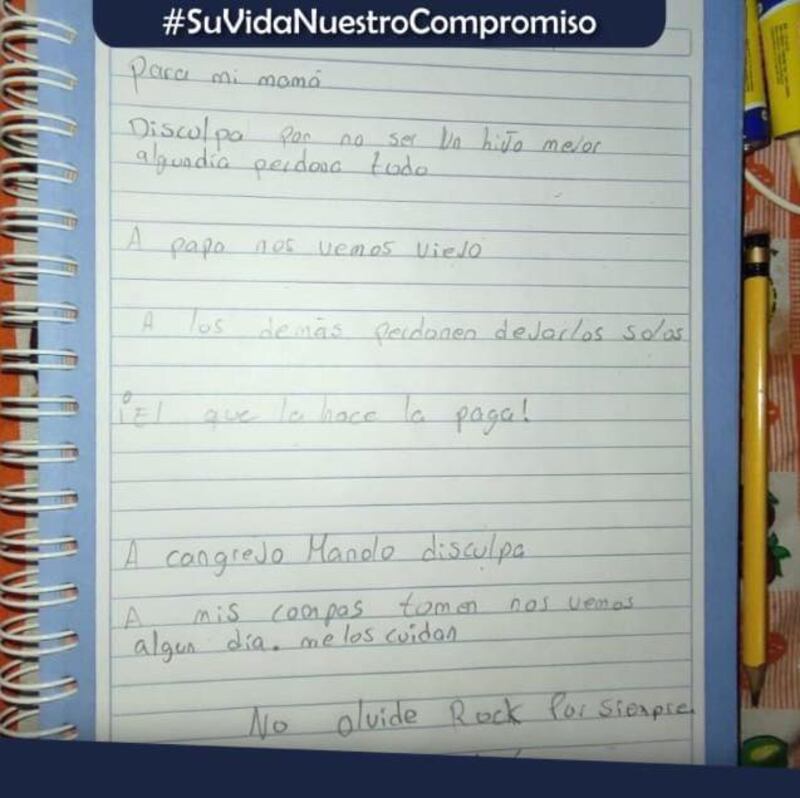 #SuVidaNuestroCompromiso
Para mi mamá
Disculpa por no ser Un hijo mejor
algundía perdona todo
A papa nos vemos viejo
A los demás perdonen dejarlos solos
¡El que la hace la paga!
A cangrejo Manolo disculpa
A mis compas tomen nos vemos
algun día. me los cuidan
No olvide Rock Por siempre